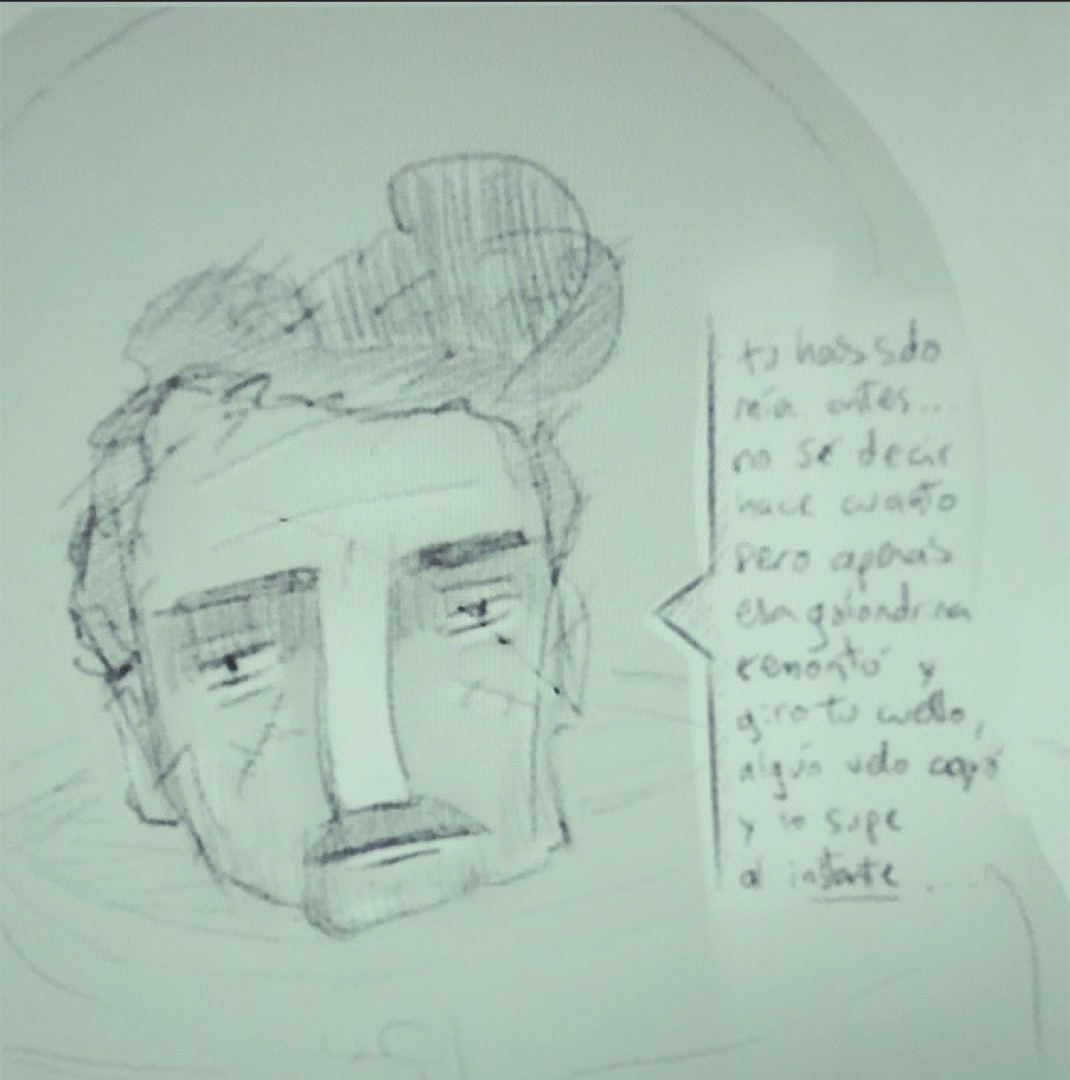 tu has sido
mía antes...
no se decir
hace cuanto
pero apenas
esa golondrina
remontó y
giro tu cuello,
algún velo cayó
y lo supe
al instante....